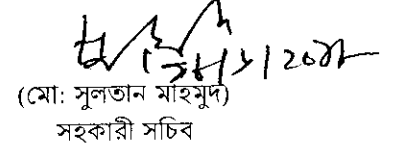 (মো: সুলতান মাহমুদ)
সহকারী সচিব